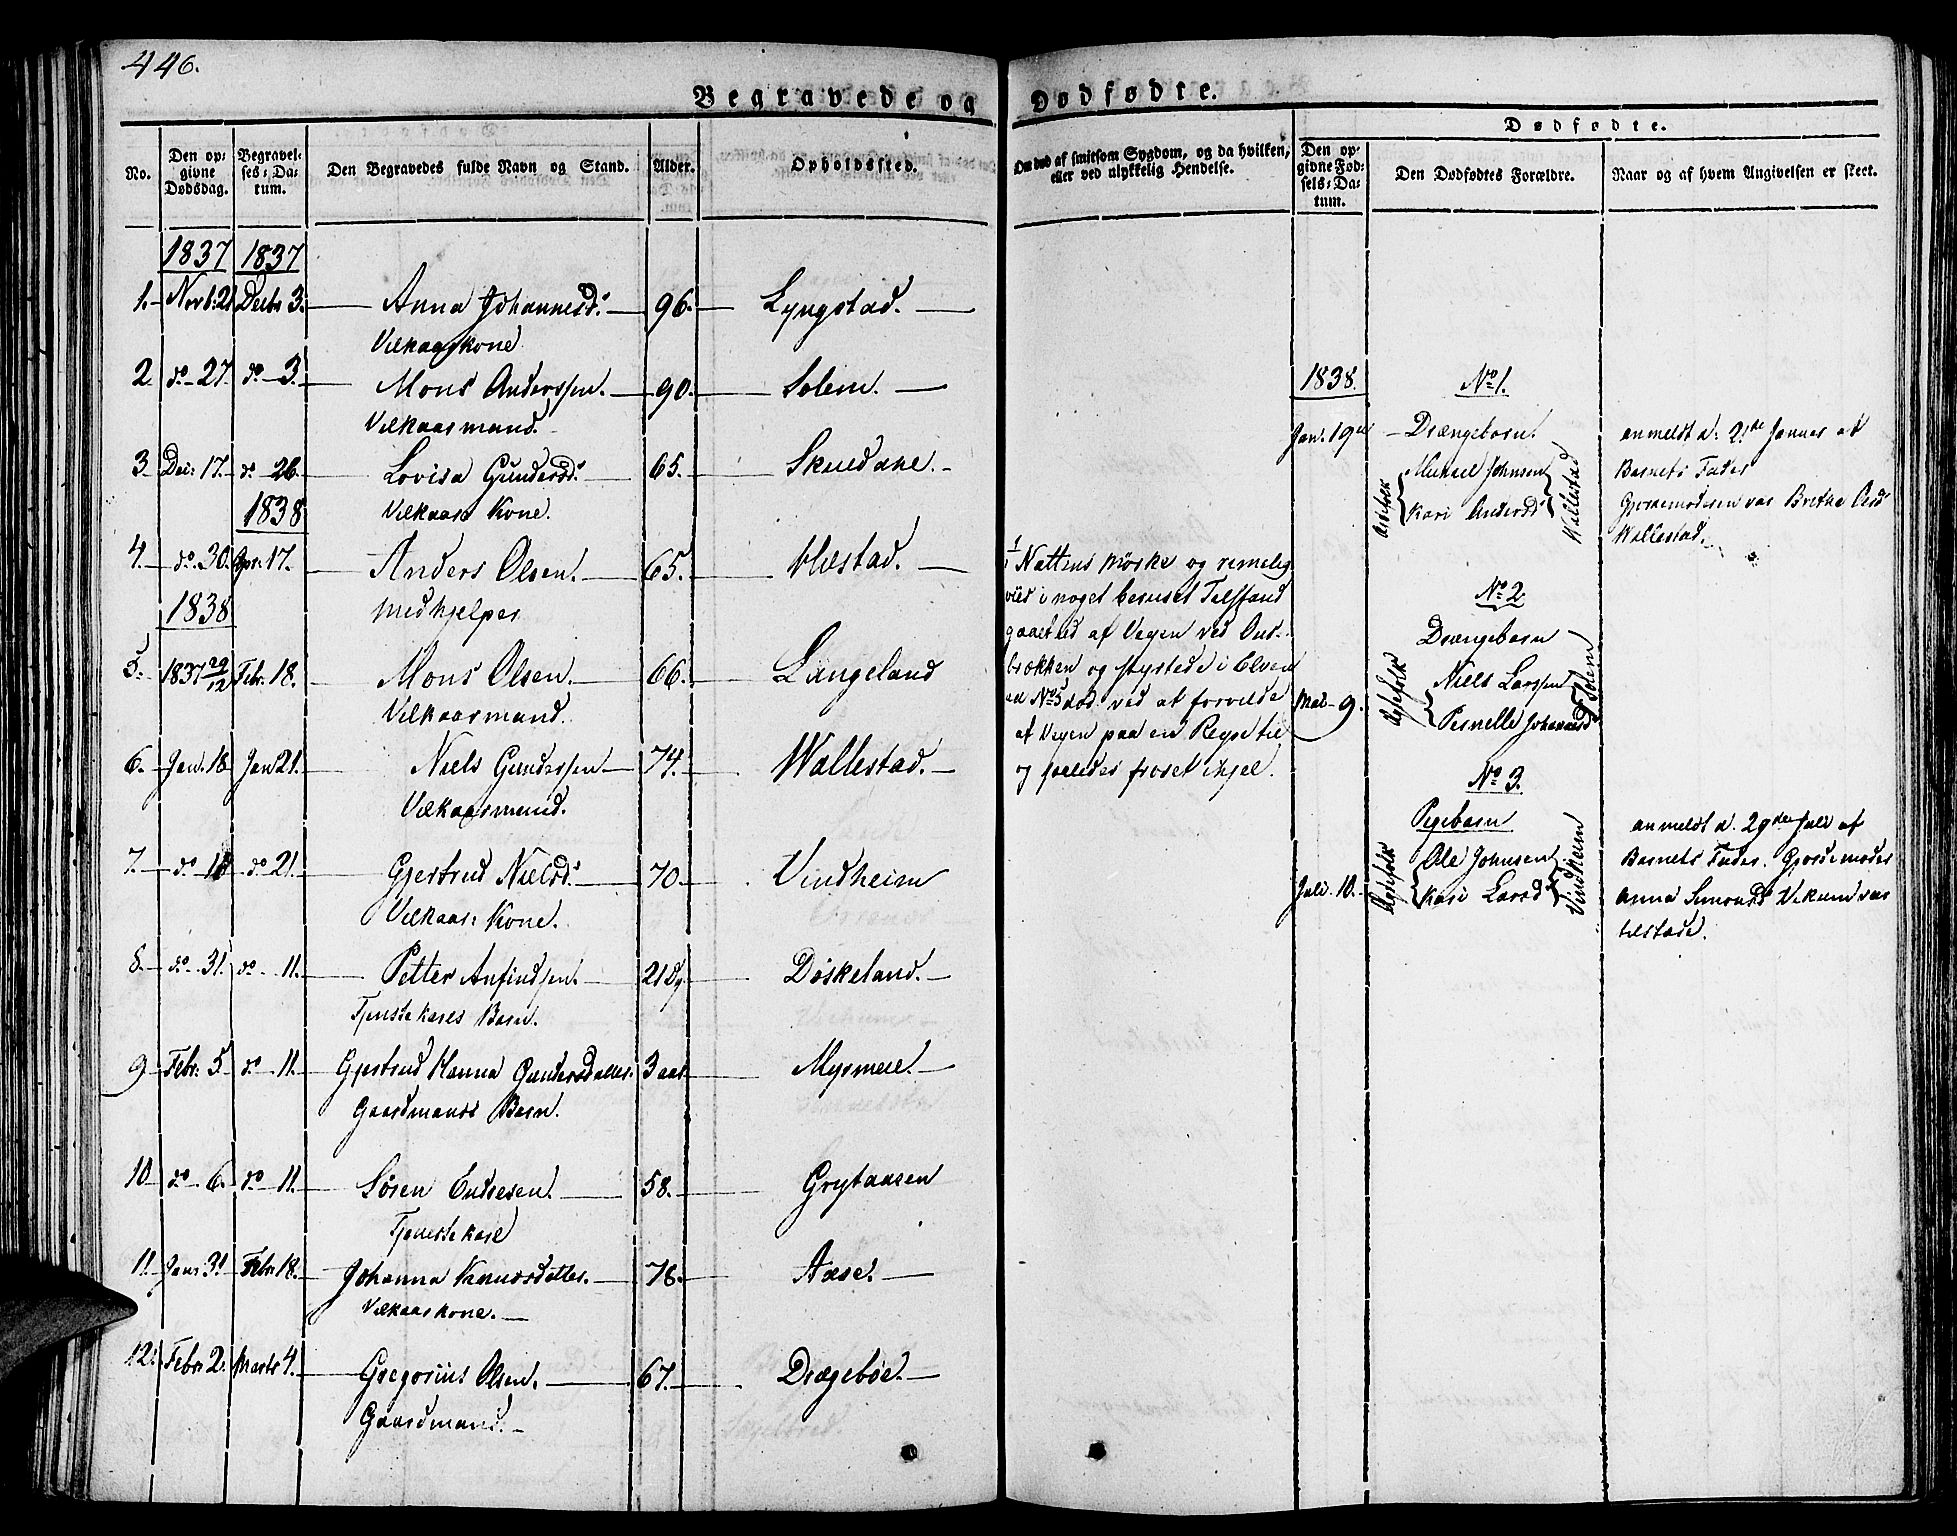 446.
Begravede og Dødfødte.
Dødfødte.
No.
Den opgivne Dødsdag.
Begravelses-Datum.
Den Begravedes fulde Navn og Stand.
Alder.
Opholdssted.
Om død af smitsom Sygdom, og da hvilken, eller ved ulykkelig Hendelse.
Den opgivne Fødsels-Datum.
Den Dødfødtes Forældre.
Naar og af hvem Angivelsen er skeet.
1837 1837
1. Novb: 21 Decbr 3. Anna Johannesd. 96. Lyngstad.
Vilkaarskone
2. do 27. do 3. Mons Anderssen. 90. Solem.
Vilkaarsmand.
3. Dec: 17. do 26. Lovisa Gundersd. 65. Skilldahl.
1838 Vilkaars Kone.
4. do 30. 17. Anders Olsen. 65.
1838 Medhjelper
5. 1837 29/12 Febr. 18. Mons Olsen. 66. Langeland
Vilkaarsmand.
6. Jan. 18 Jan 21. Niels Gunderssen 74. Wallestad.
Vilkaarsmand.
7. do 18 do 21. Gjertrud Nielsd. 70. Vindheim
Vilkaars Kone.
8. do 31. do 11. Petter Anfindsen. 21 Dg Døskeland.
Tjenestekarls Barn.
9 Febr. 5 do 11. Gjertrud Hanna Gundersdatter. 3 aar
Gaardmands Barn.
10 do 6. do 11. Søren Endresen. 58. Grytaasen
Tjenestekarl
11. Janr 31 Febr 18. Johanna Knudsdatter. 78. Aase.
Vilkaarskone.
12. Febr 2. Marts 4. Gregorius Olsen. 67. Drægebøe.
Gaardmand.
i Nattens Mørke og rimelig-
viis i noget beruset Tilstand
gaaet ud af Vegen ved
brokken og styrtede i Elven
ad No 5 død ved at forvilde
af Vegen paa en Reyse til
og saaledes frosset ihjel.
1838. No 1.
Jan. 19de Drængebarn.
Mikael Johnsen
Kari Andersd
Wallestad
anmeldt d. 21de Januar af
Barnets Fader
Gjordemoderen var Brithe Olsd
Wallestad.
No 2
Drængebarn
Mai 9. Ægtefolk
Niels Larssen
Pernelle Johannesd
Solem
No 3.
Pigebarn
Juli 10. Ægtefolk
Ole Johnsen
Kari Larsd
Vindheim
anmeldt d. 29de Juli af
Barnets Fader. Gjordemoder
Anna Simonsd var
tilstæde.